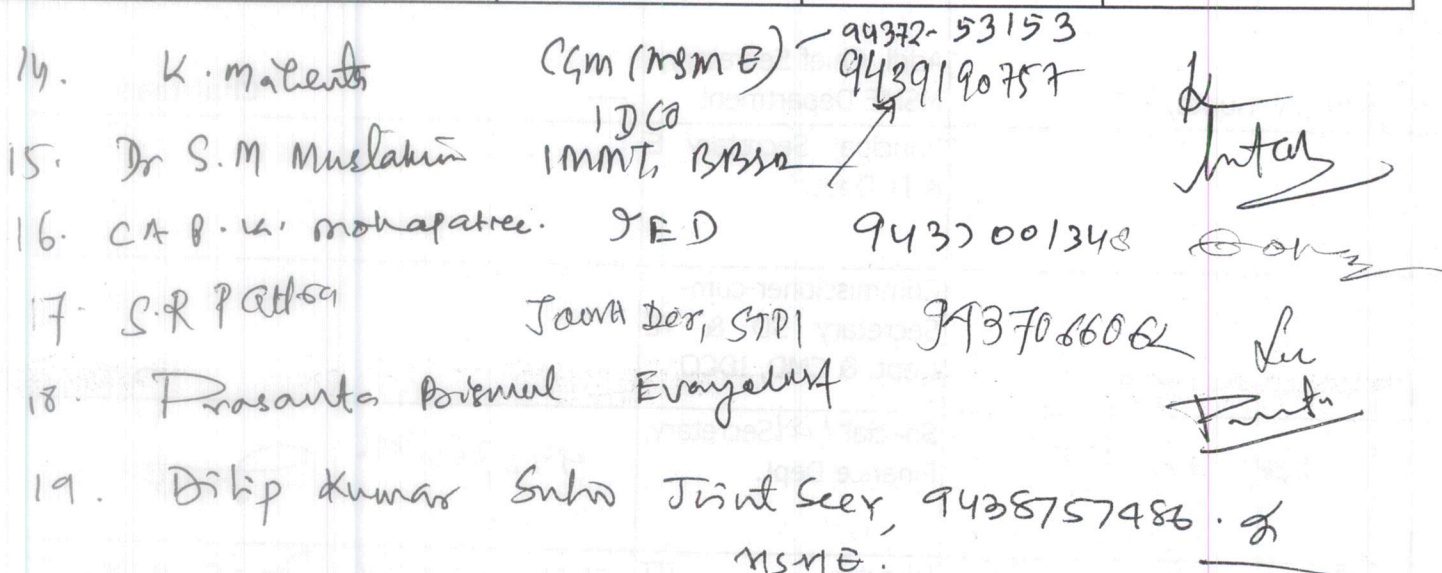 14. K. Mahenta CGM (MSME) - 94372-53153
IDCO 9439190757
15. Dr S.M Mustakim IMMT, BBSR
16. CA B.K. Mohapatra. JED 9437001348
17. S.R Pattra Joint Dir, STPI 9437066062
18. Prasanta Biswal
19. Dilip Kumar Sahoo Joint Secy, 9438757486.
MSME.